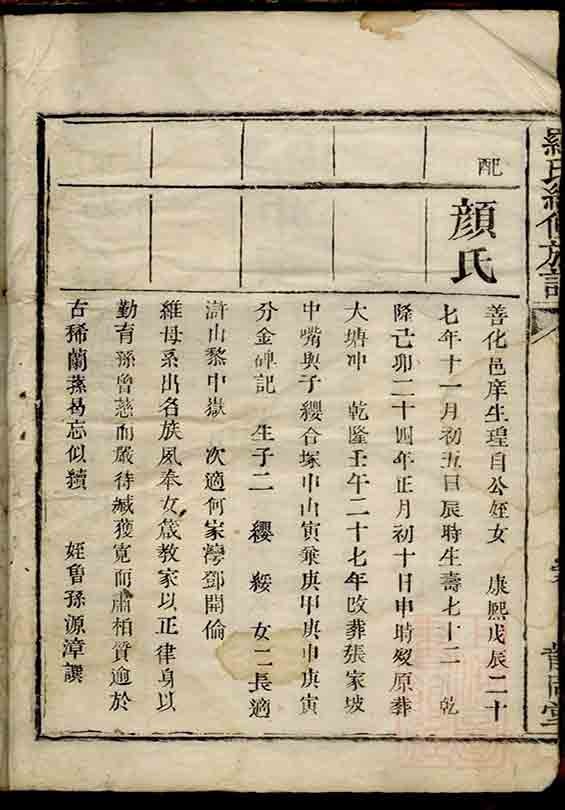 羅氏續修族譜
配
顏氏
善化邑庠生瑝自公姪女 康熙戊辰二十
七年十一月初五日辰時生壽七十二 乾
隆己卯二十四年正月初十日申時歿原葬
大塘冲 乾隆壬午二十七年改葬張家坡
中嘴與子纓合塚申山寅兼庚甲庚申庚寅
分金碑記 生子二 纓 綏 女二長適
滸山黎中嶽 次適何家灣鄧開倫
維母系出名族夙奉女箴教家以正律身以
勤育孫曾慈而嚴待緘獲寬而肅柏質逾於
古稀蘭蓀曷忘似續 姪曾孫源漳譔